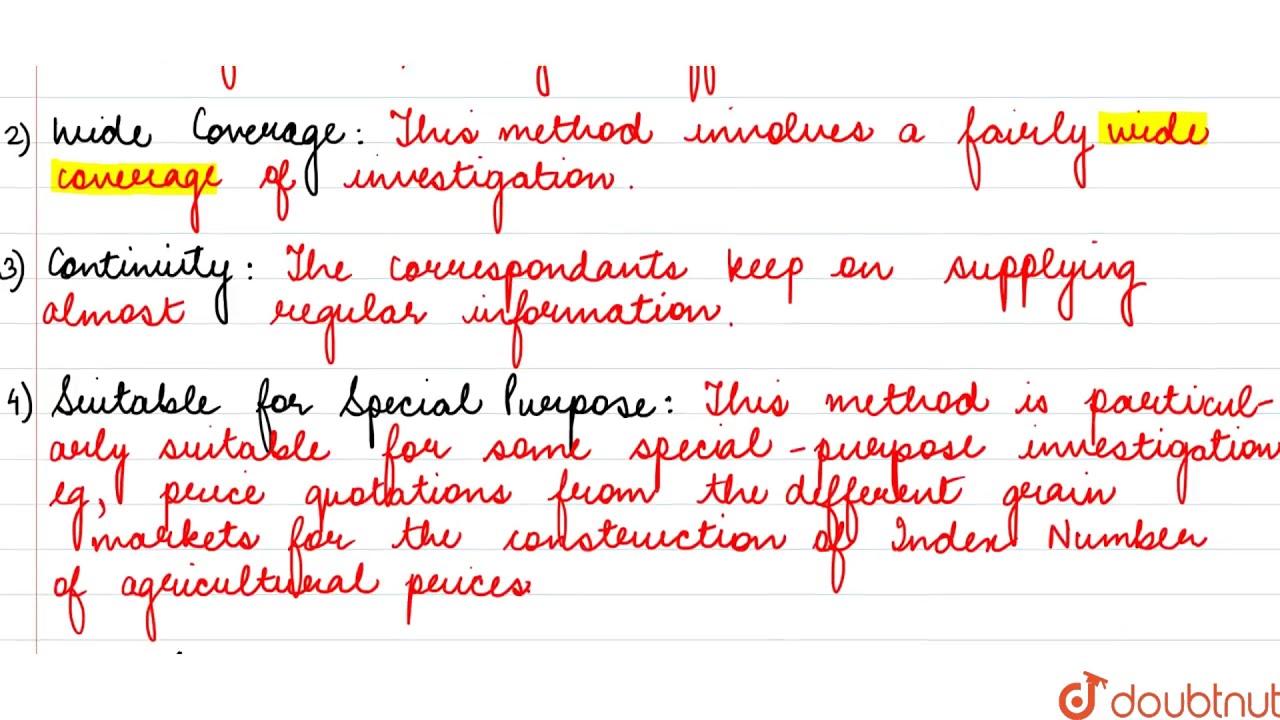 2) Wide Coverage: This method involves a fairly wide
coverage of investigation.
3) Continuity: The correspondants keep on supplying
almost regular information.
4) Suitable for Special Purpose: This method is particul-
arly suitable for some special-purpose investigation
eg, price quotations from the different grain
markets for the construction of Index Number
of agricultural prices.
doubtnut